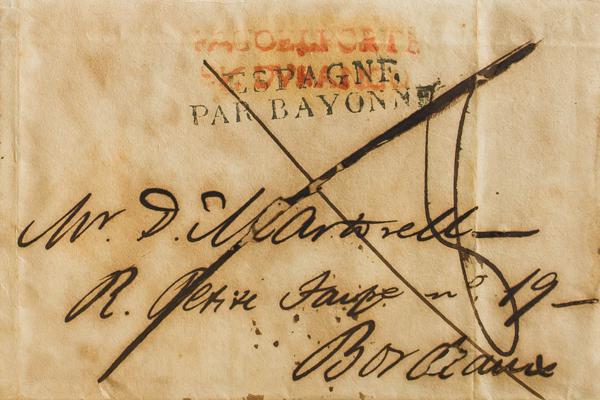 ESPAGNE
PAR BAYONNE
Mr. D. Martorell
R. Petite Taupe nº 19
Bordeaux